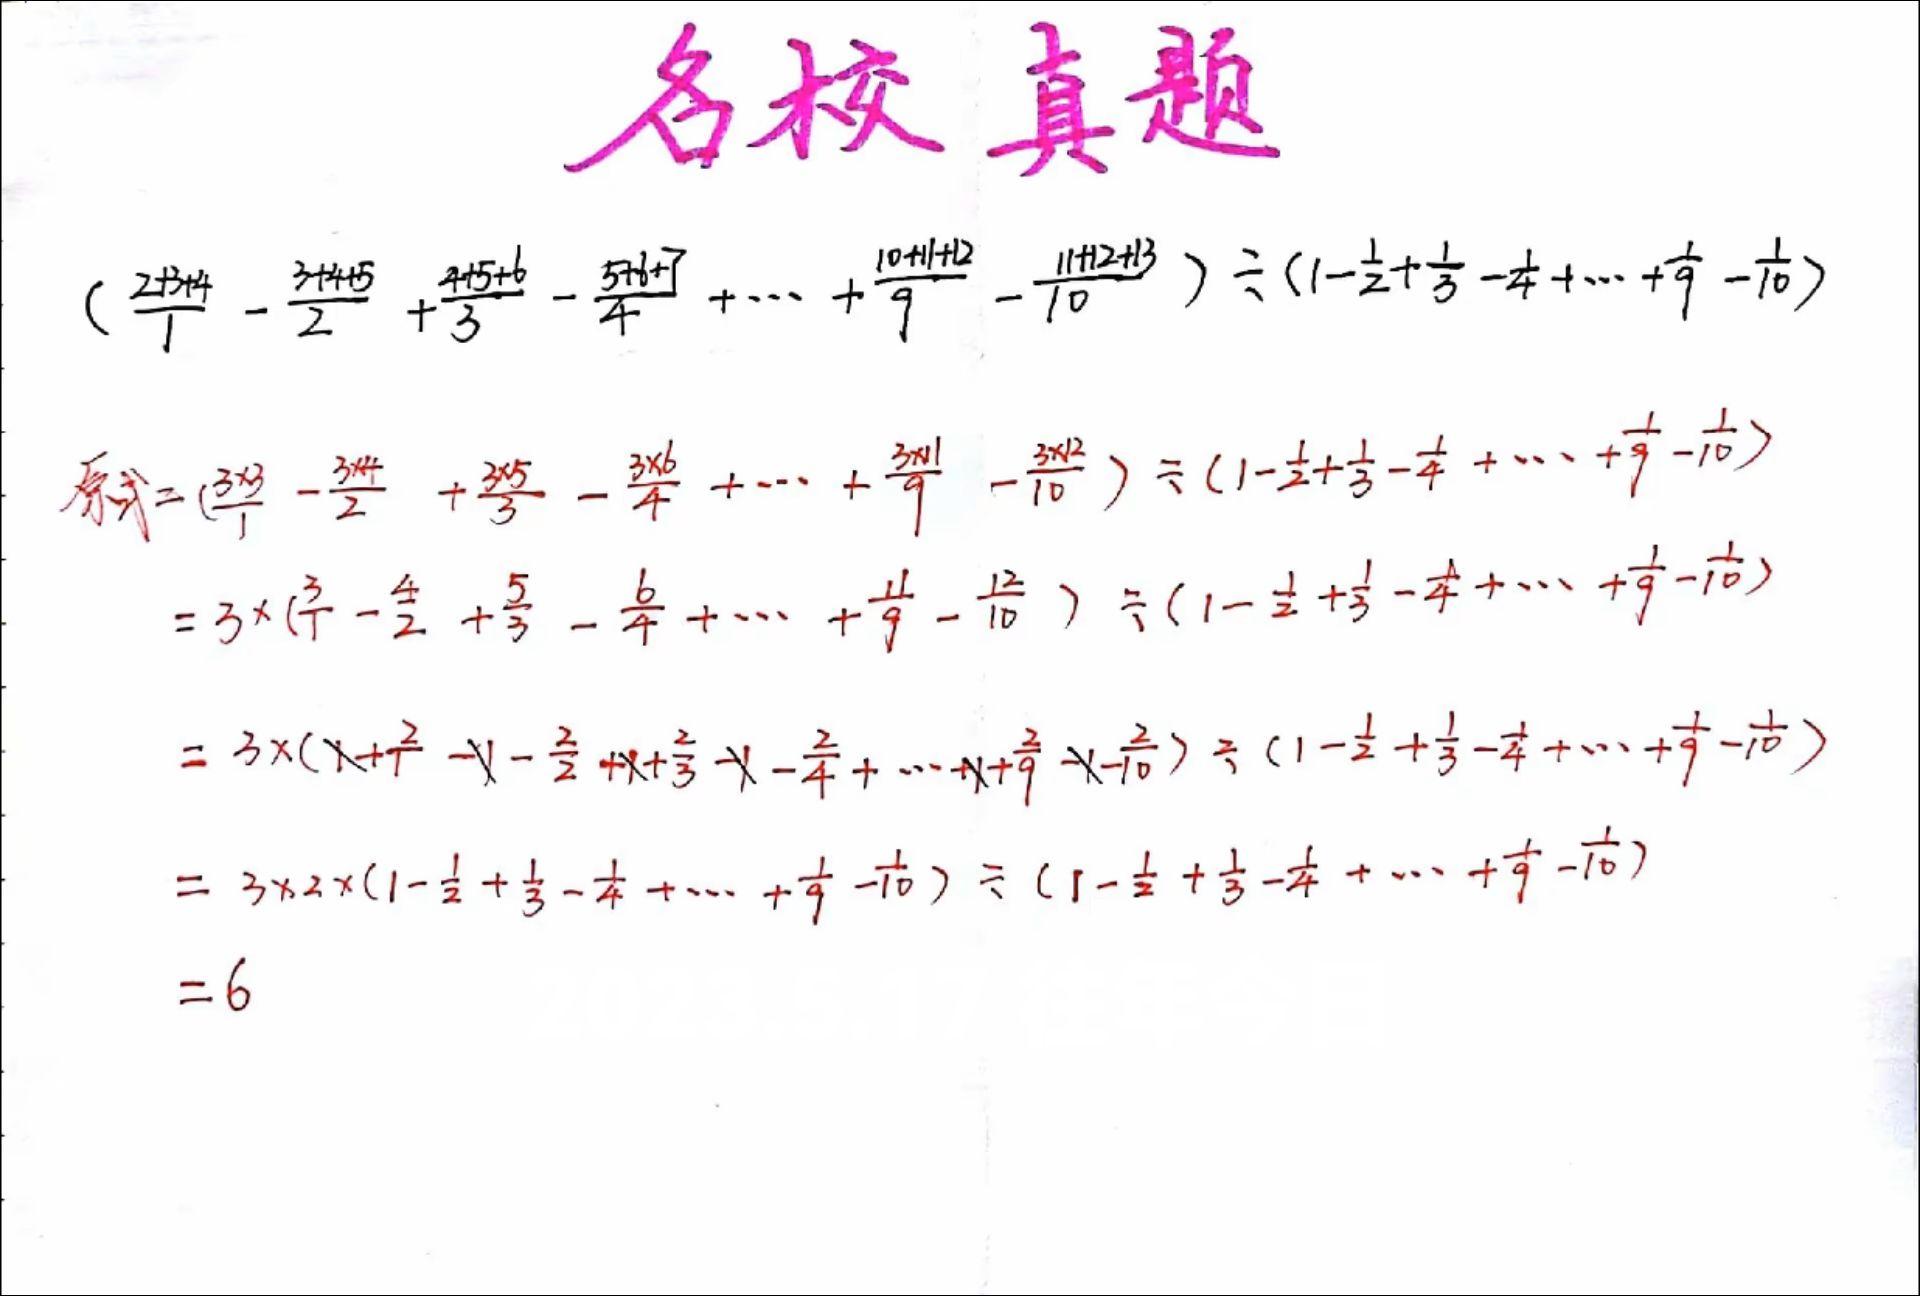 名校真题
(\frac{2+3+4}{1} - \frac{3+4+5}{2} + \frac{4+5+6}{3} - \frac{5+6+7}{4} + ⋯ + \frac{10+11+12}{9} - \frac{11+12+13}{10}) ÷ (1 - \frac{1}{2} + \frac{1}{3} - \frac{1}{4} + ⋯ + \frac{1}{9} - \frac{1}{10})
原式 = (\frac{3×3}{1} - \frac{3×4}{2} + \frac{3×5}{3} - \frac{3×6}{4} + ⋯ + \frac{3×11}{9} - \frac{3×12}{10}) ÷ (1 - \frac{1}{2} + \frac{1}{3} - \frac{1}{4} + ⋯ + \frac{1}{9} - \frac{1}{10})
= 3 × (\frac{3}{1} - \frac{4}{2} + \frac{5}{3} - \frac{6}{4} + ⋯ + \frac{11}{9} - \frac{12}{10}) ÷ (1 - \frac{1}{2} + \frac{1}{3} - \frac{1}{4} + ⋯ + \frac{1}{9} - \frac{1}{10})
= 3 × (1 + \frac{2}{1} - 1 - \frac{2}{2} + 1 + \frac{2}{3} - 1 - \frac{2}{4} + ⋯ + 1 + \frac{2}{9} - 1 - \frac{2}{10}) ÷ (1 - \frac{1}{2} + \frac{1}{3} - \frac{1}{4} + ⋯ + \frac{1}{9} - \frac{1}{10})
= 3 × 2 × (1 - \frac{1}{2} + \frac{1}{3} - \frac{1}{4} + ⋯ + \frac{1}{9} - \frac{1}{10}) ÷ (1 - \frac{1}{2} + \frac{1}{3} - \frac{1}{4} + ⋯ + \frac{1}{9} - \frac{1}{10})
= 6